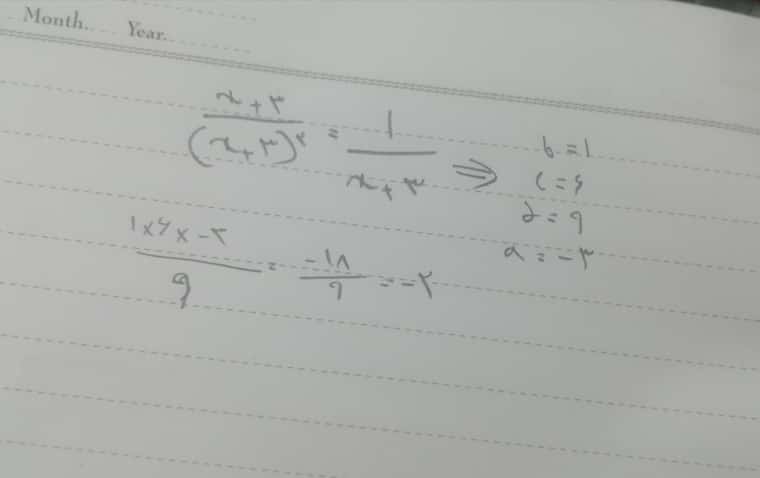 Month.... Year....
x+۳/(x+۳)^۲ = ۱/x+۳ ⇒
b=۱
c=۶
d=۹
a=-۳
۱×۶×-۳/۹ = -۱۸/۹ = -۲